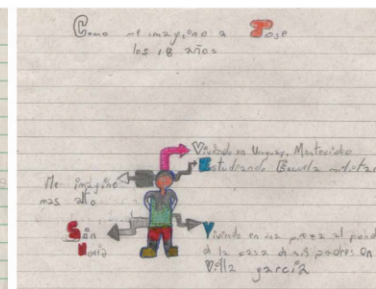 Como me imagino a Jose
los 18 años
Viviendo en Uruguay, Montevideo
Estudiando Escuela militar
Me imagino
mas alto
Sin
Novia
Viviendo en una pieza al fondo
d la casa de mis padres en
Villa garcía